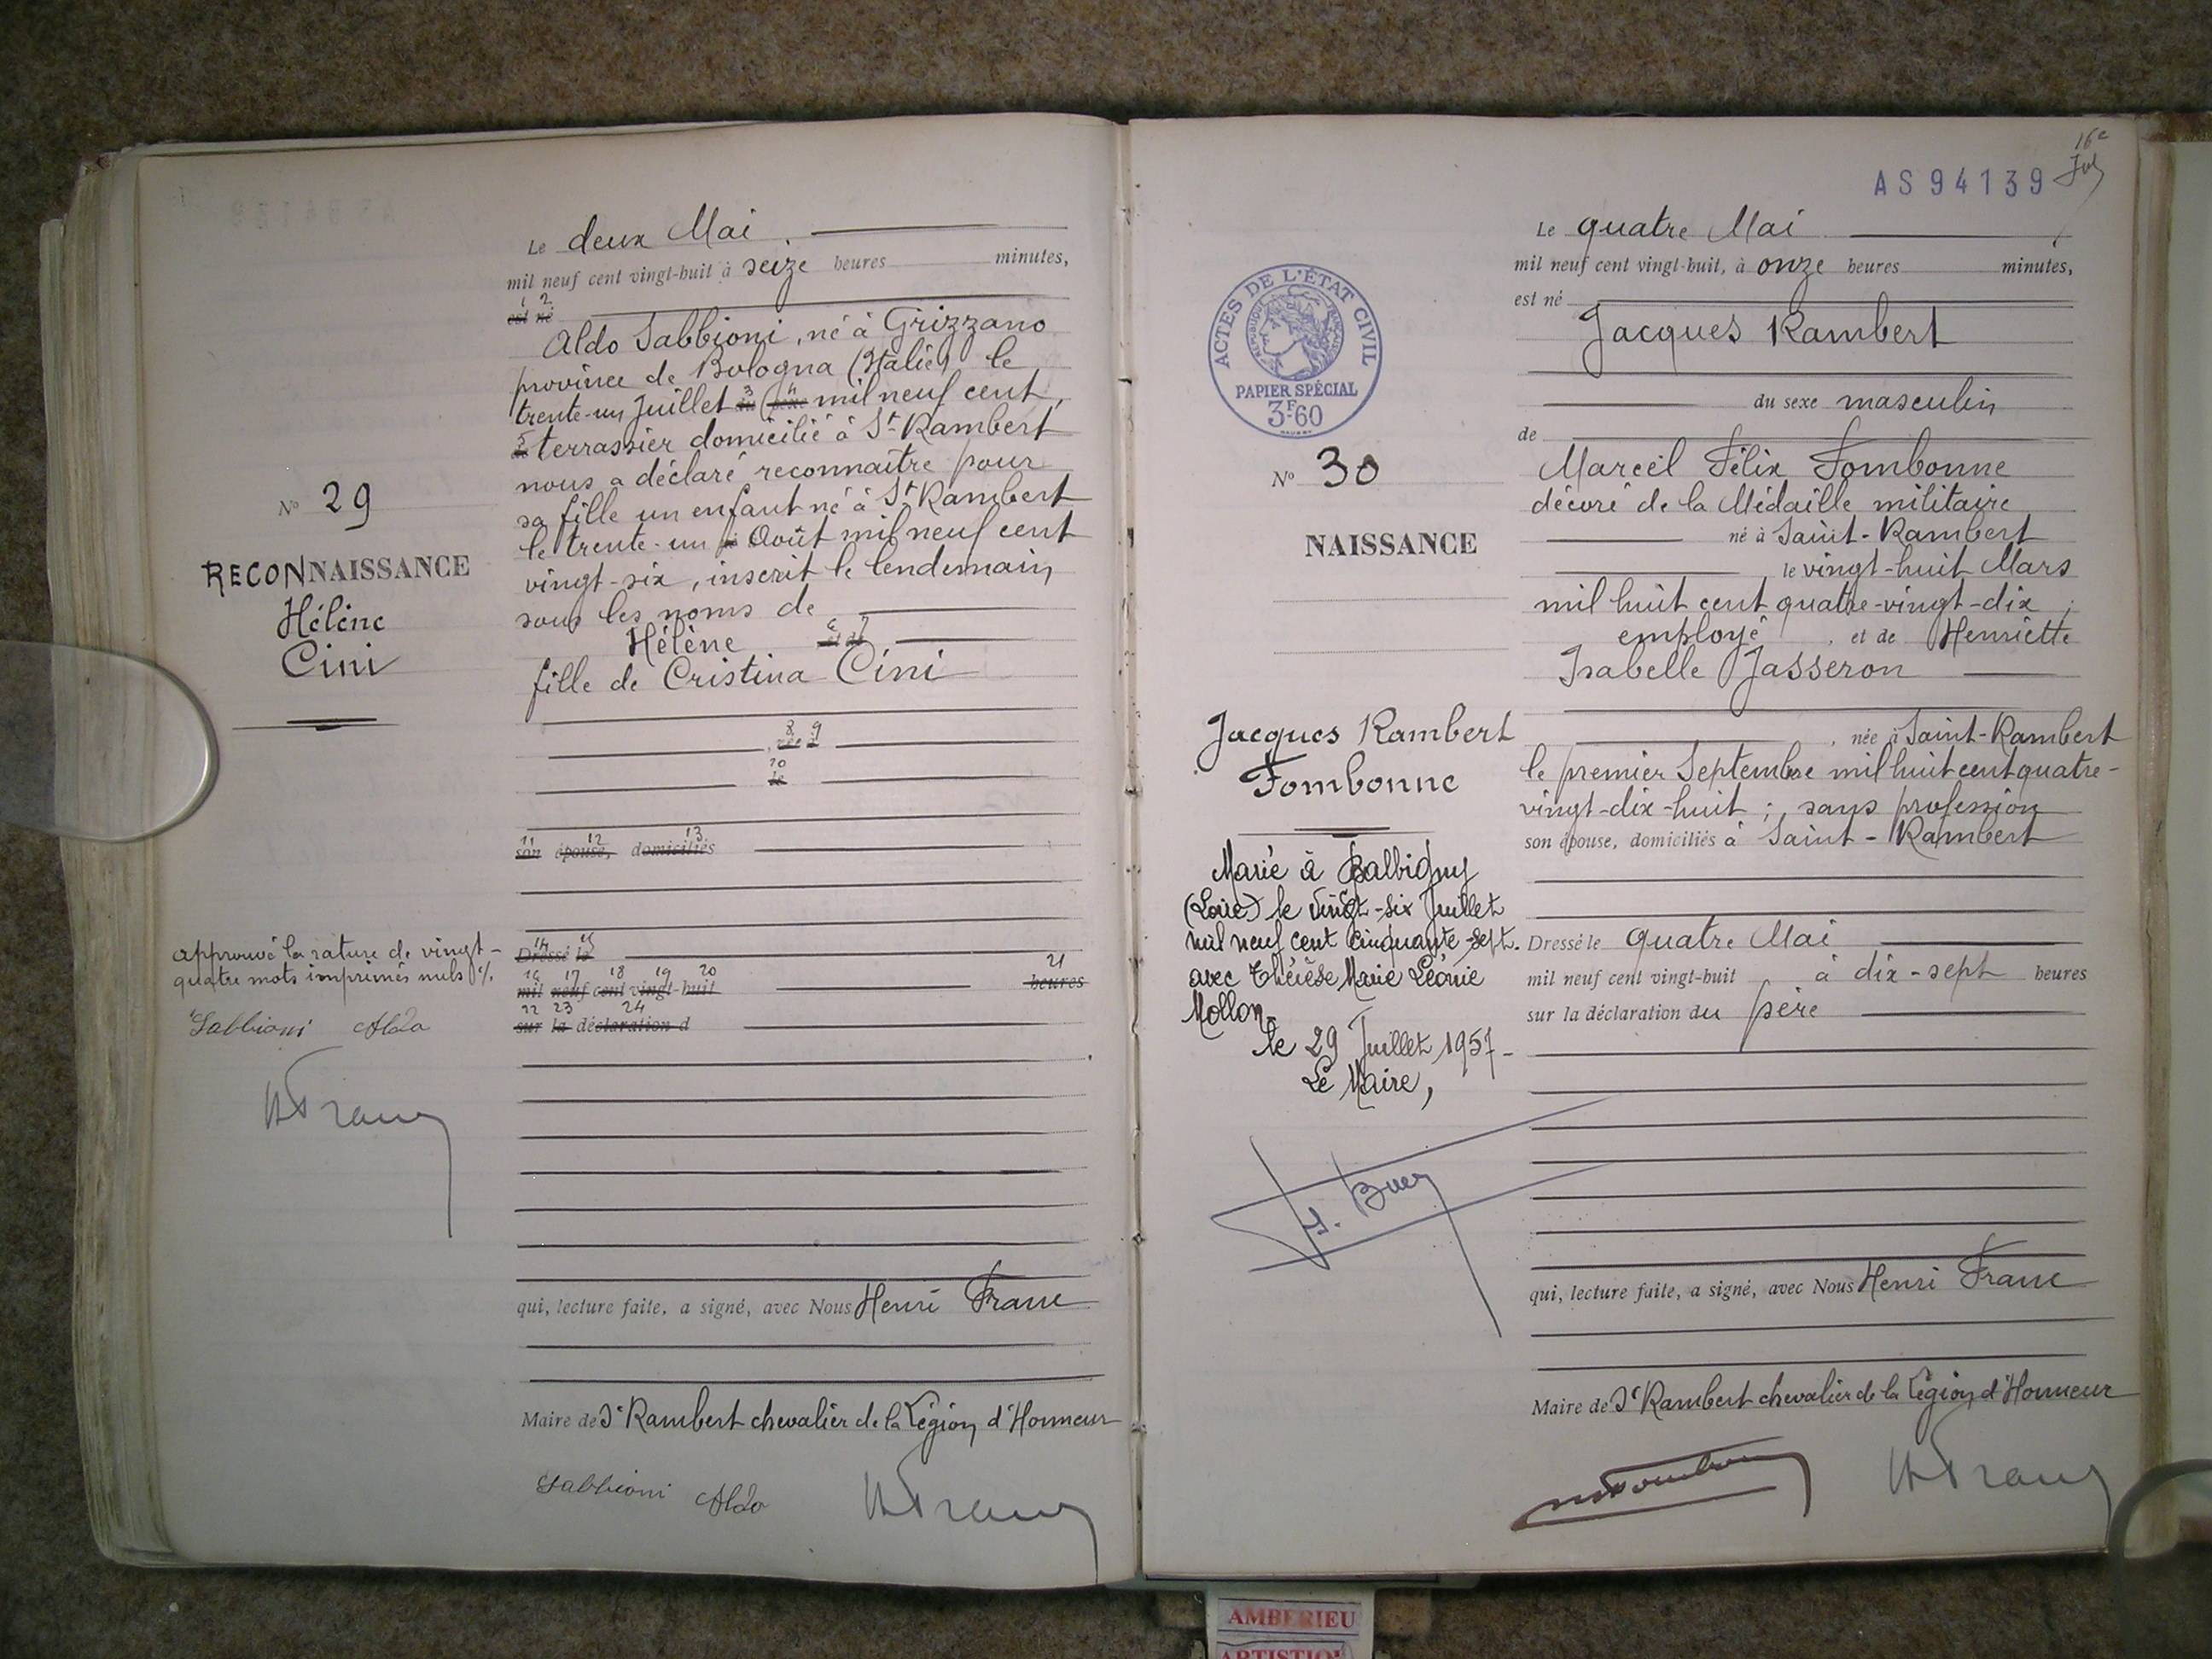 Le deux Mai
mil neuf cent vingt-huit à seize heures minutes,
1 2
est né
Aldo Sabbioni, né à Grizzano
province de Bologna (Italie) le
3 4
trente-un Juillet du sexe mil neuf cent,
5
de terrassier domicilié à St-Rambert
nous a déclaré reconnaître pour
sa fille un enfant né à St Rambert
le trente-un Août mil neuf cent
vingt-six, inscrit le lendemain
sous les noms de
6 7
Hélène et de
fille de Cristina Cini
8 9
, née à
10
le
11 12 13
son épouse, domiciliés
14 15
Dressé le
16 17 18 19 20 21
mil neuf cent vingt-huit heures
22 23 24
sur la déclaration d
qui, lecture faite, a signé, avec Nous Henri Franc
Maire de St Rambert chevalier de la Légion d'Honneur
Sabbioni Aldo HFranc
No 29
RECONNAISSANCE
Hélène
Cini
approuvé la rature de vingt-
quatre mots imprimés nuls
Sabbioni Aldo
HFranc
16e
AS 94139
ACTES DE L'ÉTAT CIVIL
RÉPUBLIQUE FRANÇAISE
PAPIER SPÉCIAL
3F.60
No 30
NAISSANCE
Jacques Rambert
Fombonne
Marié à Balbigny
(Loire) le vingt-six Juillet
mil neuf cent cinquante-sept.
avec Thérèse Marie Léonie
Mollon.
le 29 Juillet 1957-
Le Maire,
Le quatre Mai
mil neuf cent vingt-huit, à onze heures minutes,
est né
Jacques Rambert
du sexe masculin
de
Marcel Félix Fombonne
décoré de la Médaille militaire
né à Saint-Rambert
, le vingt-huit Mars
mil huit cent quatre-vingt-dix ;
employé , et de Henriette
Isabelle Jasseron
, née à Saint-Rambert
le premier Septembre mil huit cent quatre-
vingt-dix-huit ; sans profession
son épouse, domiciliés à Saint-Rambert
Dressé le quatre Mai
mil neuf cent vingt-huit à dix-sept heures
sur la déclaration du père
qui, lecture faite, a signé, avec Nous Henri Franc
Maire de St Rambert chevalier de la Légion d'Honneur
HFranc
AMBERIEU